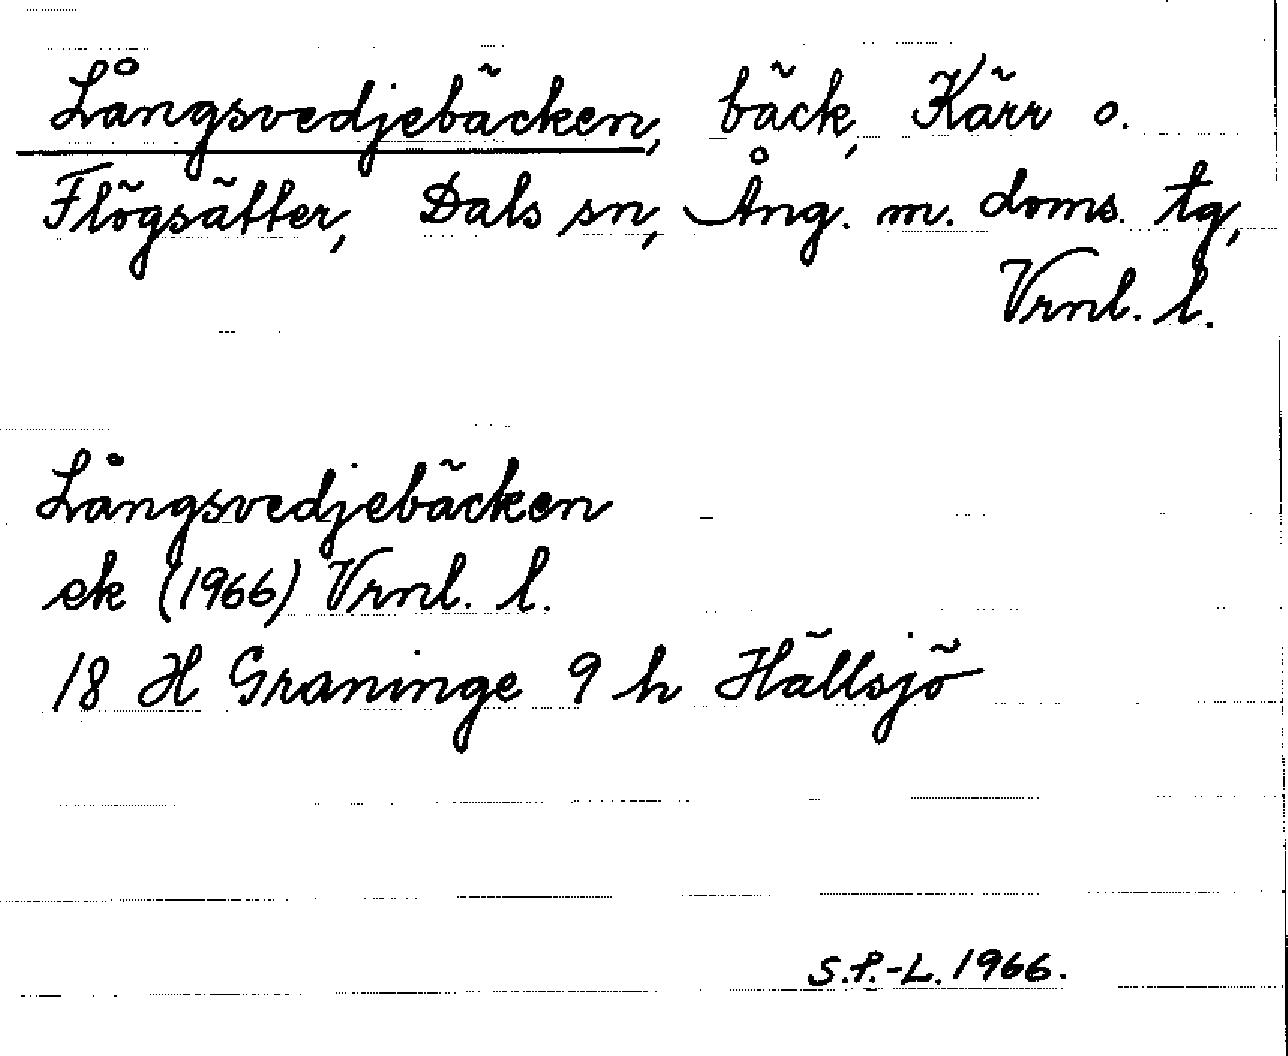 Långsvedjebäcken, bäck, Kärr o.
Flögsätter, Dals sn, Ång. m. doms. tg,
Vrnl. l.
Långsvedjebäcken
ek (1966) Vrnl. l.
18 H Graninge 9 h Hällsjö
S.P.-L. 1966.